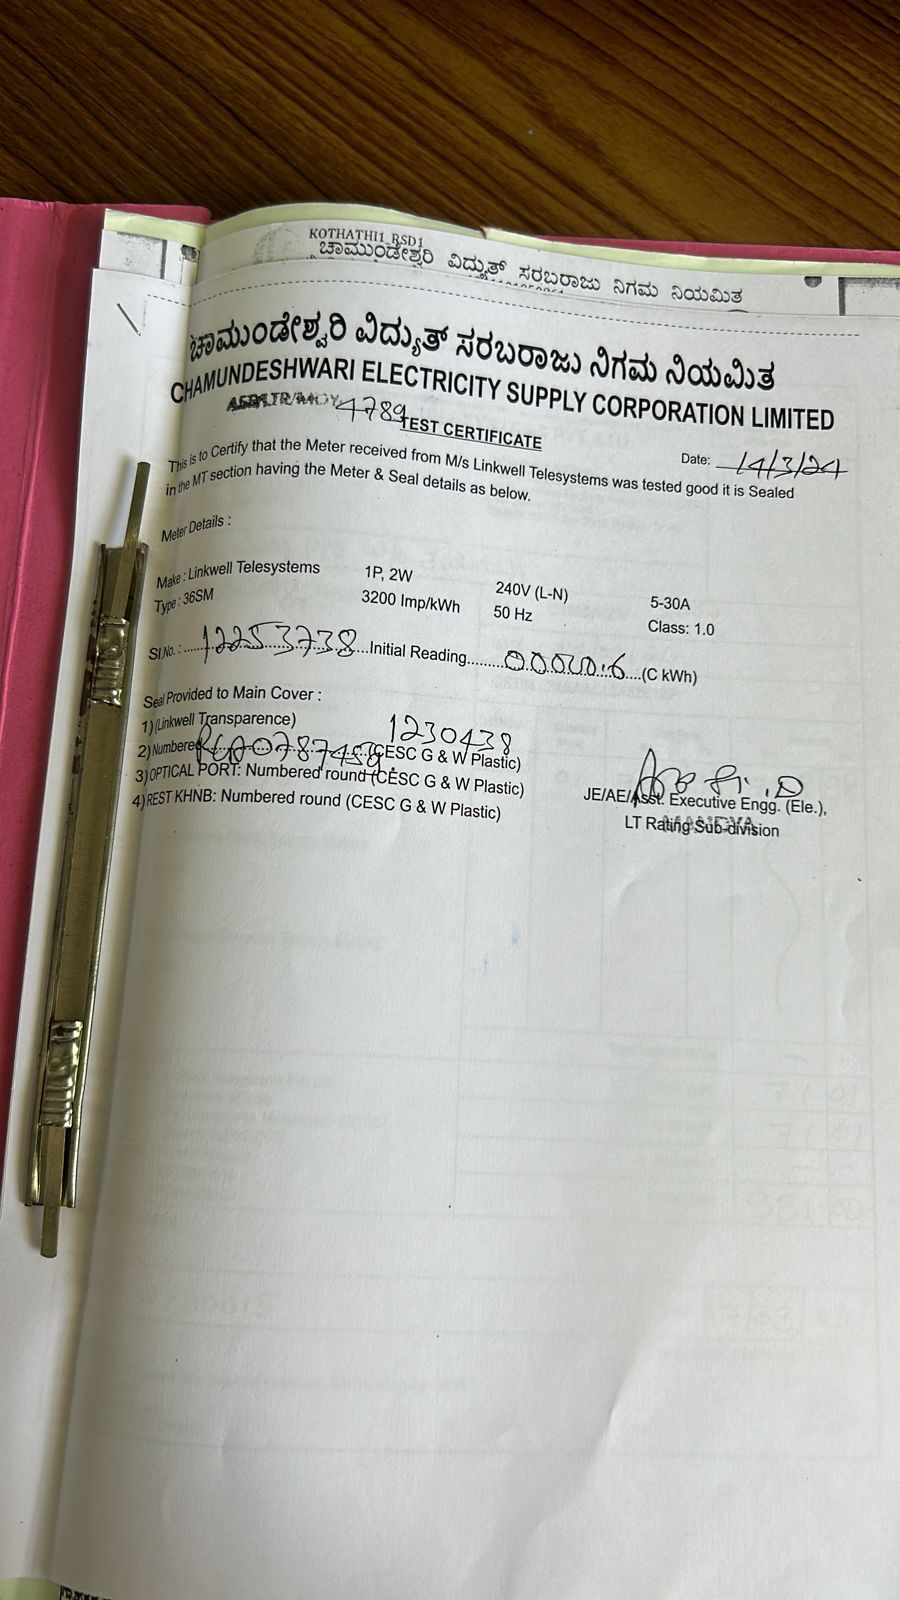 KOTHATHI1_RSD1
ಚಾಮುಂಡೇಶ್ವರಿ ವಿದ್ಯುತ್ ಸರಬರಾಜು ನಿಗಮ ನಿಯಮಿತ
ಚಾಮುಂಡೇಶ್ವರಿ ವಿದ್ಯುತ್ ಸರಬರಾಜು ನಿಗಮ ನಿಯಮಿತ
CHAMUNDESHWARI ELECTRICITY SUPPLY CORPORATION LIMITED
4789
TEST CERTIFICATE
Date: 14/3/24
This is to Certify that the Meter received from M/s Linkwell Telesystems was tested good it is Sealed
in the MT section having the Meter & Seal details as below.
Meter Details :
Make : Linkwell Telesystems 1P, 2W 240V (L-N) 5-30A
Type : 36SM 3200 Imp/kWh 50 Hz Class: 1.0
Sl.No. : 12253738 Initial Reading (C kWh)
Seal Provided to Main Cover :
1) (Linkwell Transparence) 1230438
2) Numbered (CESC G & W Plastic)
3) OPTICAL PORT: Numbered round (CESC G & W Plastic)
4) REST KHNB: Numbered round (CESC G & W Plastic)
JE/AE/Asst. Executive Engg. (Ele.),
LT Rating Sub-division
MANDYA